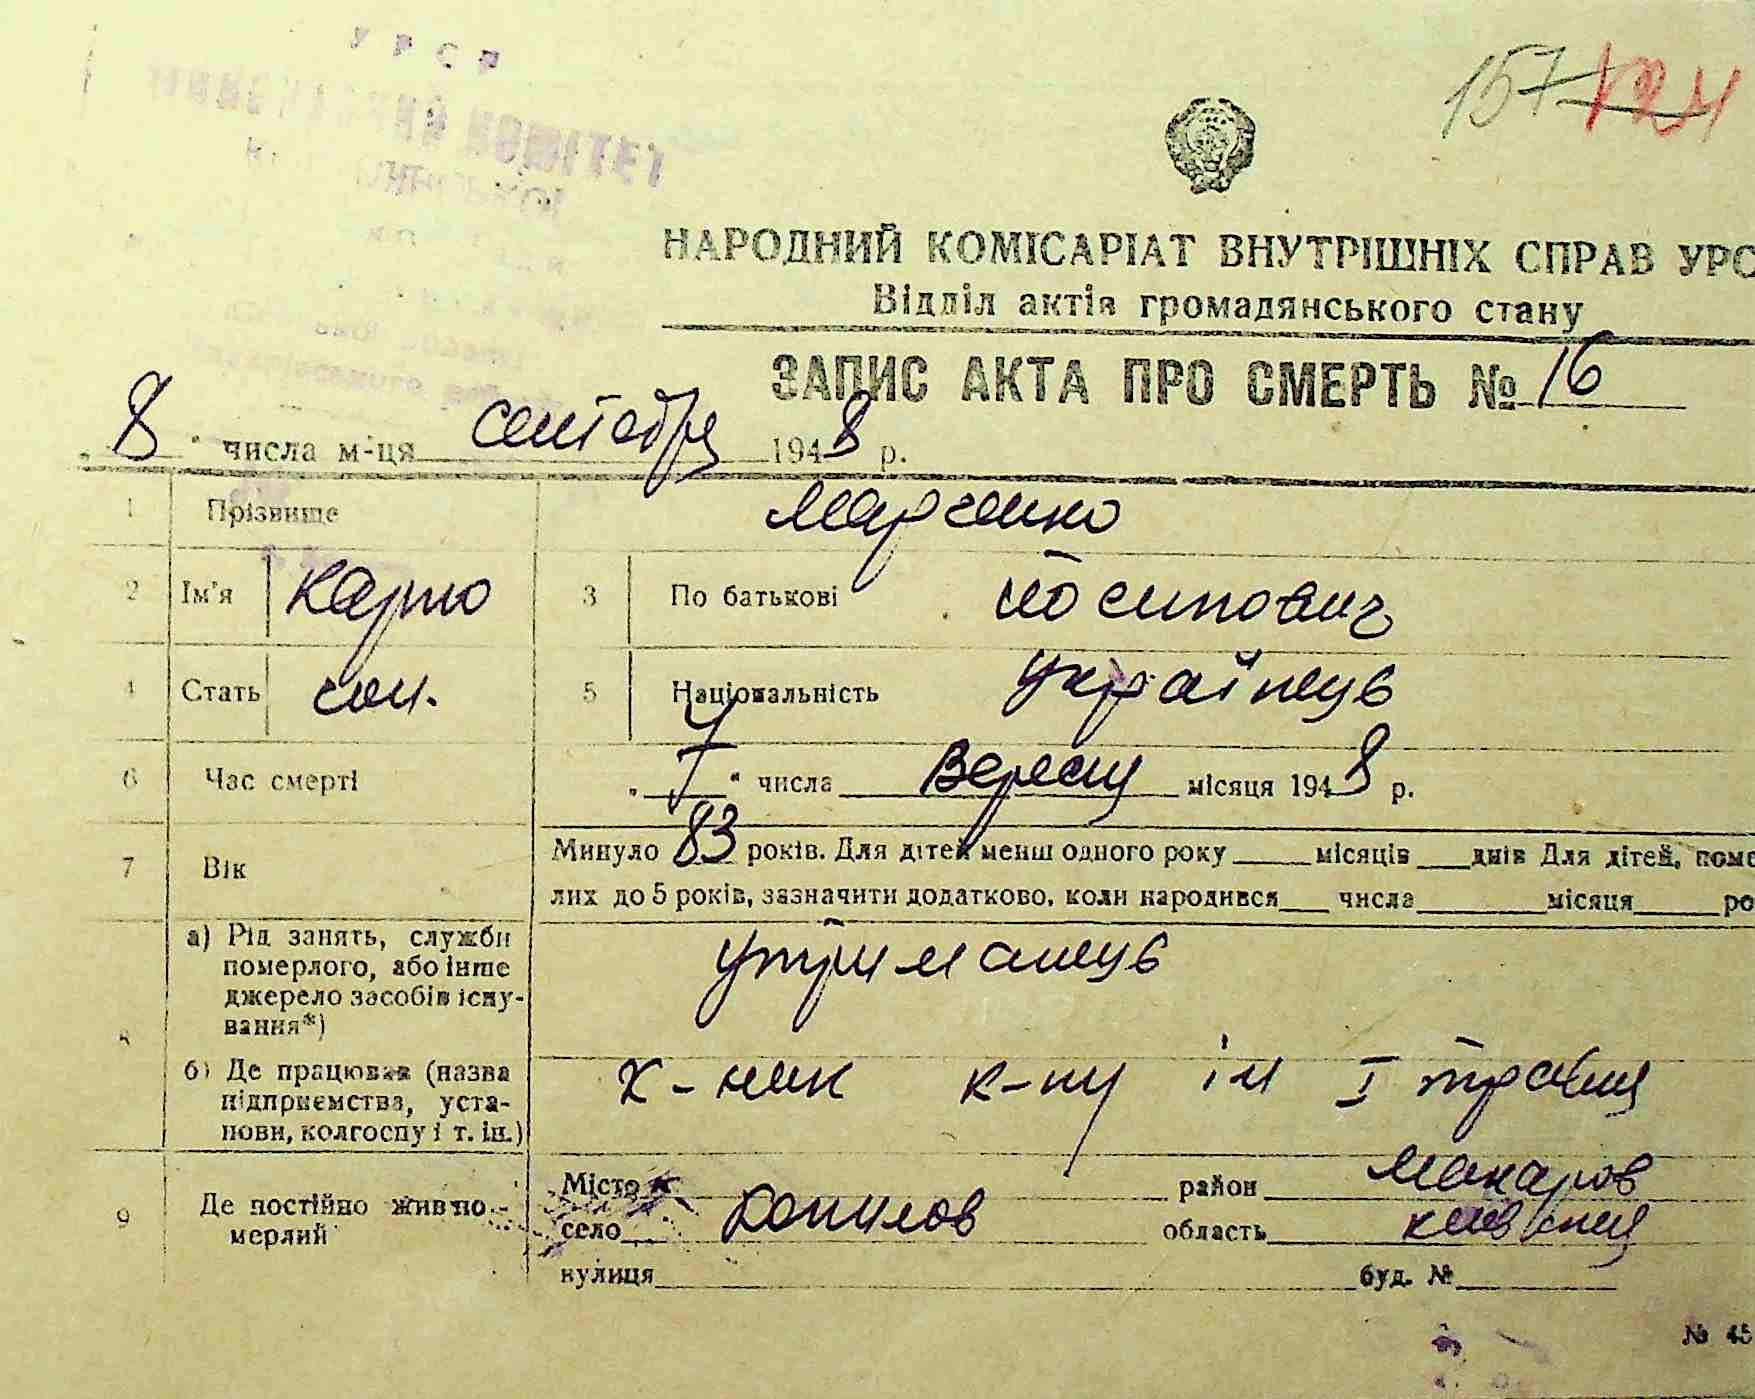 УРСР
КОМІТЕТ
157 124
НАРОДНИЙ КОМІСАРІАТ ВНУТРІШНІХ СПРАВ УРС
Відділ актів громадянського стану
ЗАПИС АКТА ПРО СМЕРТЬ № 16
„ 8 " числа м-ця сентября 1948 р.
1 Прізвище Марченко
2 Ім'я Карпо 3 По батькові Йосипович
4 Стать чол. 5 Національність українець
6 Час смерті „ 7 " числа Вересня місяця 1948 р.
7 Вік Минуло 83 років. Для дітей менш одного року ____ місяців ____ днів Для дітей, поме
лих до 5 років, зазначити додатково, коли народився ____ числа ____ місяця ____ ро
8 а) Рід занять, служби померлого, або інше джерело засобів існування*) утриманець
б) Де працював (назва підприємства, установи, колгоспу і т. ін.) к-ник к-пу ім I травня
9 Де постійно жив померлий Місто район Макаров
село Копилов область київська
вулиця ____ буд. № ____
№ 45